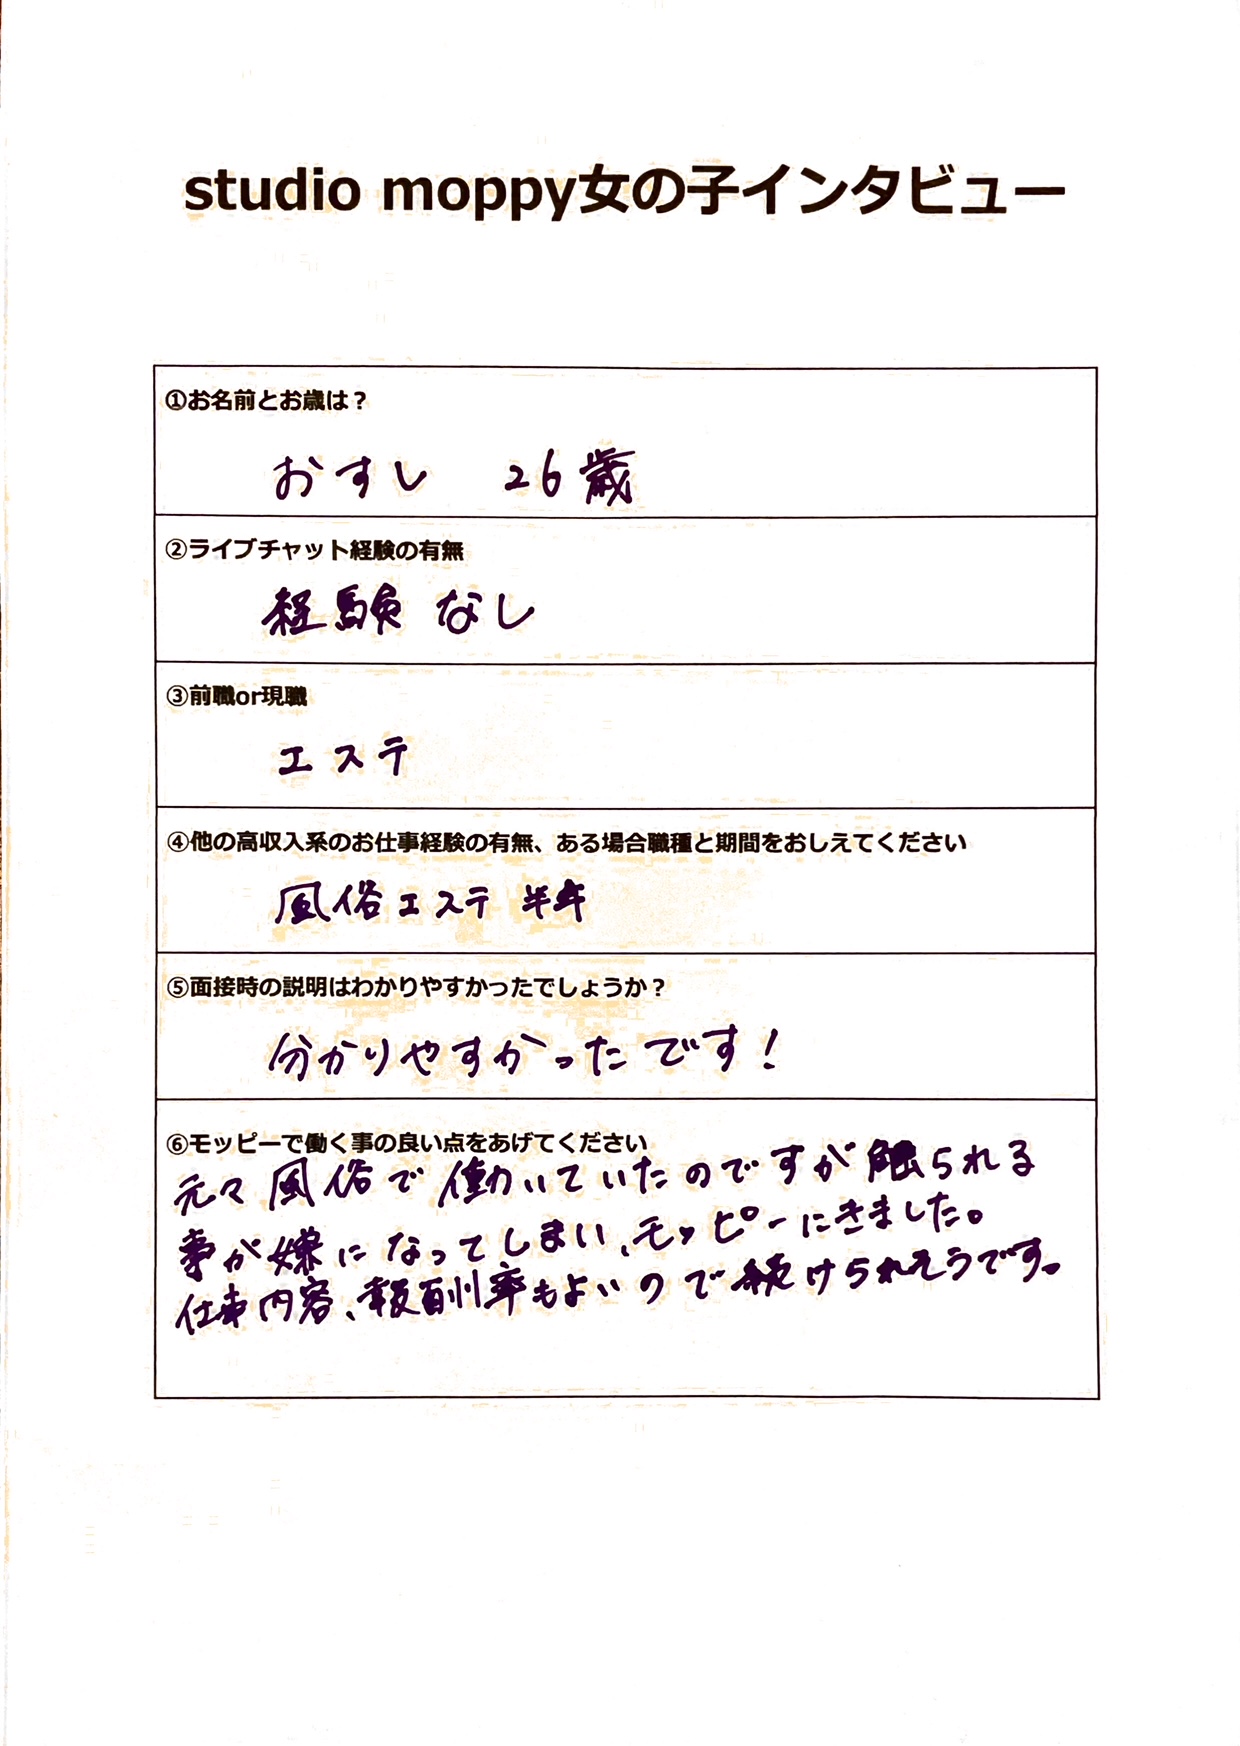 studio moppy女の子インタビュー
①お名前とお歳は？
おすし 26歳
②ライブチャット経験の有無
経験なし
③前職or現職
エステ
④他の高収入系のお仕事経験の有無、ある場合職種と期間をおしえてください
風俗エステ 半年
⑤面接時の説明はわかりやすかったでしょうか？
分かりやすかったです！
⑥モッピーで働く事の良い点をあげてください
元々風俗で働いていたのですが触られる
事が嫌になってしまい、モッピーにきました。
仕事内容、報酬率もよいので続けられそうです。